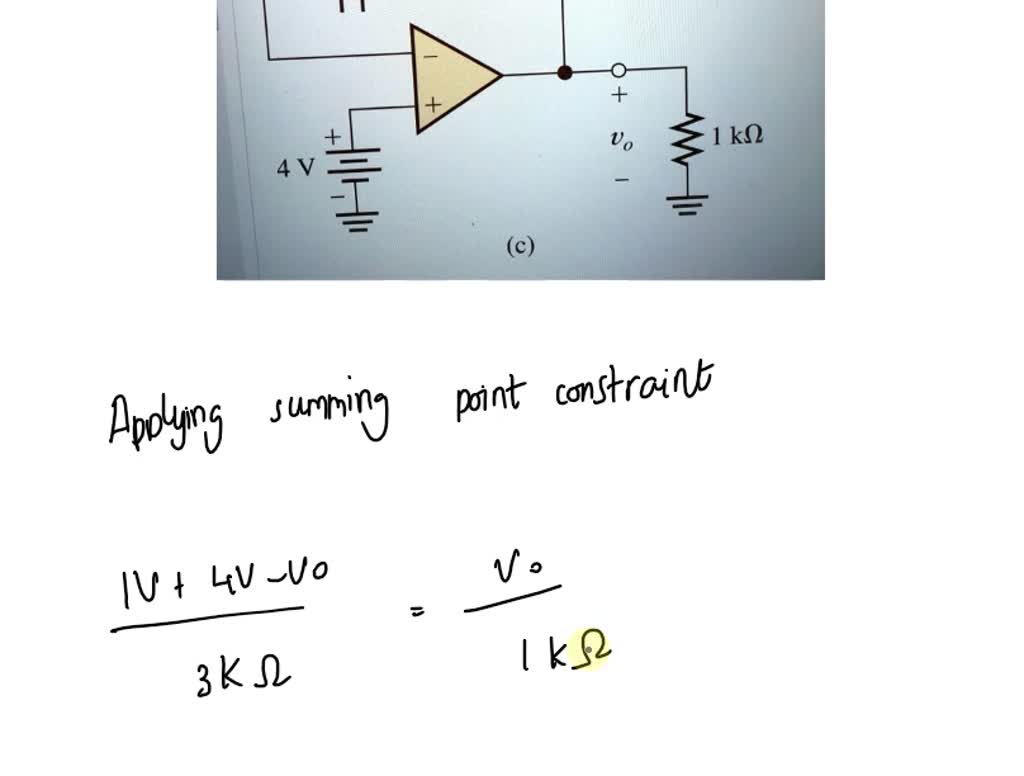 −
+
+
4 V
−
+
vo
−
1 kΩ
(c)
Applying summing point constraint
1V + 4V - Vo
3KΩ
=
Vo
1 kΩ